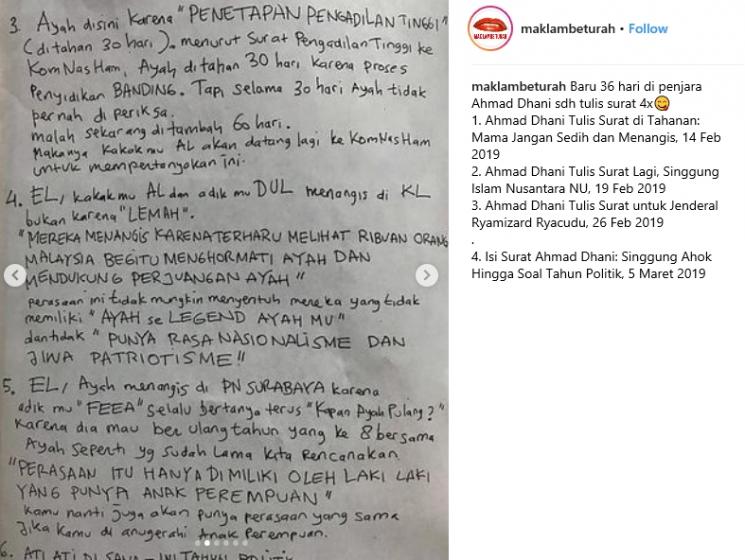 3. Ayah disini karena "PENETAPAN PENGADILAN TINGGI"
(ditahan 30 hari). menurut Surat Pengadilan Tinggi ke
KomNasHam, Ayah ditahan 30 hari karena proses
Penyidikan BANDING. Tapi selama 30 hari Ayah tidak
pernah di periksa.
malah sekarang ditambah 60 hari.
Makanya kakakmu AL akan datang lagi ke KomNasHam
untuk mempertanyakan ini.
4. EL, kakakmu AL dan adik mu DUL menangis di KL
bukan karena "LEMAH".
"MEREKA MENANGIS KARENA TERHARU MELIHAT RIBUAN ORANG
MALAYSIA BEGITU MENGHORMATI AYAH DAN
MENDUKUNG PERJUANGAN AYAH"
perasaan ini tidak mungkin menyentuh mereka yang tidak
memiliki "AYAH se LEGEND AYAH MU"
dan tidak "PUNYA RASA NASIONALISME DAN
JIWA PATRIOTISME!!
5. EL, Ayah menangis di PN SURABAYA karena
adik mu "FEEA" selalu bertanya terus "Kapan Ayah Pulang?"
karena dia mau ber ulang tahun yang ke 8 bersama
Ayah seperti yg sudah lama kita rencanakan
"PERASAAN ITU HANYA DIMILIKI OLEH LAKI LAKI
YANG PUNYA ANAK PEREMPUAN"
kamu nanti juga akan punya perasaan yang sama
Jika kamu di anugerahi Anak Perempuan.
6. ATI ATI DI SANA - INI TAHUN POLITIK
MAKLAMBETURAH
maklambeturah • Follow
maklambeturah Baru 36 hari di penjara
Ahmad Dhani sdh tulis surat 4x😋
1. Ahmad Dhani Tulis Surat di Tahanan:
Mama Jangan Sedih dan Menangis, 14 Feb
2019
2. Ahmad Dhani Tulis Surat Lagi, Singgung
Islam Nusantara NU, 19 Feb 2019
3. Ahmad Dhani Tulis Surat untuk Jenderal
Ryamizard Ryacudu, 26 Feb 2019
.
4. Isi Surat Ahmad Dhani: Singgung Ahok
Hingga Soal Tahun Politik, 5 Maret 2019